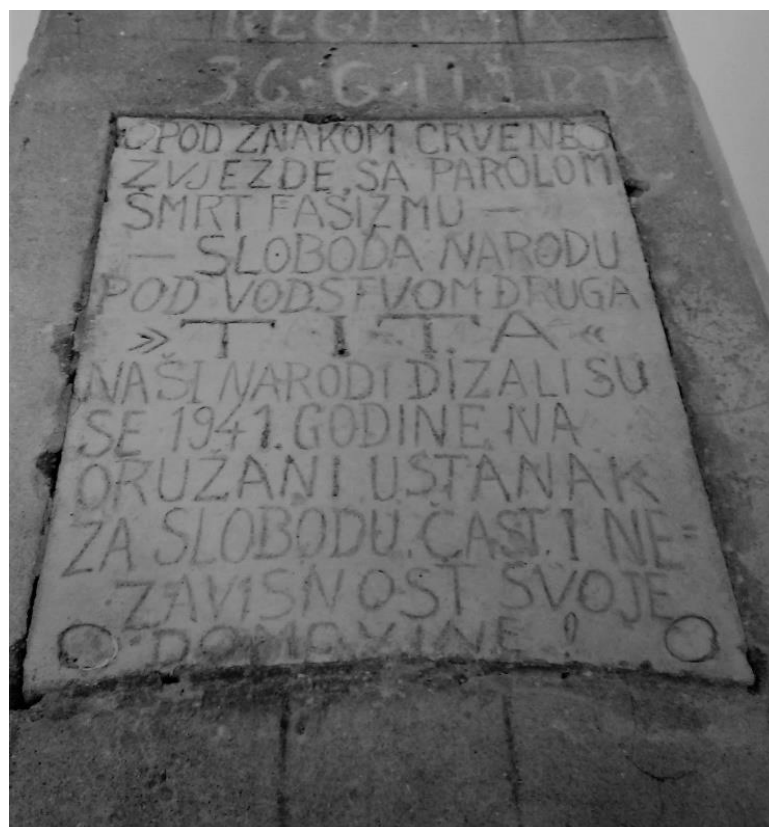 36·G·
POD ZNAKOM CRVENE
ZVJEZDE, SA PAROLOM
SMRT FAŠIZMU —
— SLOBODA NARODU
POD VODSTVOM DRUGA
» TITA «
NAŠI NARODI DIZALI SU
SE 1941. GODINE NA
ORUŽANI USTANAK
ZA SLOBODU, ČAST, I NE=
ZAVISNOST SVOJE
DOMOVINE!